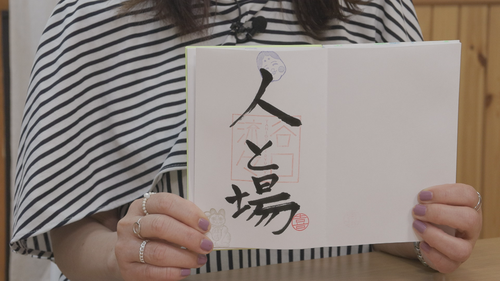 人と場